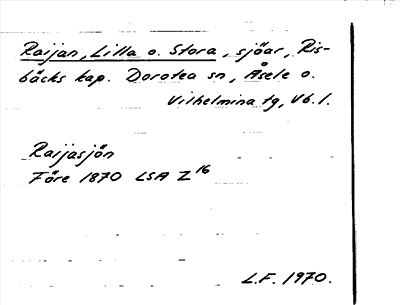 Raijan, Lilla o. Stora, sjöar, Ris-
bäcks kap. Dorotea sn, Åsele o.
Vilhelmina tg, Vb. l.
Raijasjön
Före 1870 LSA Z16
L.F. 1970.